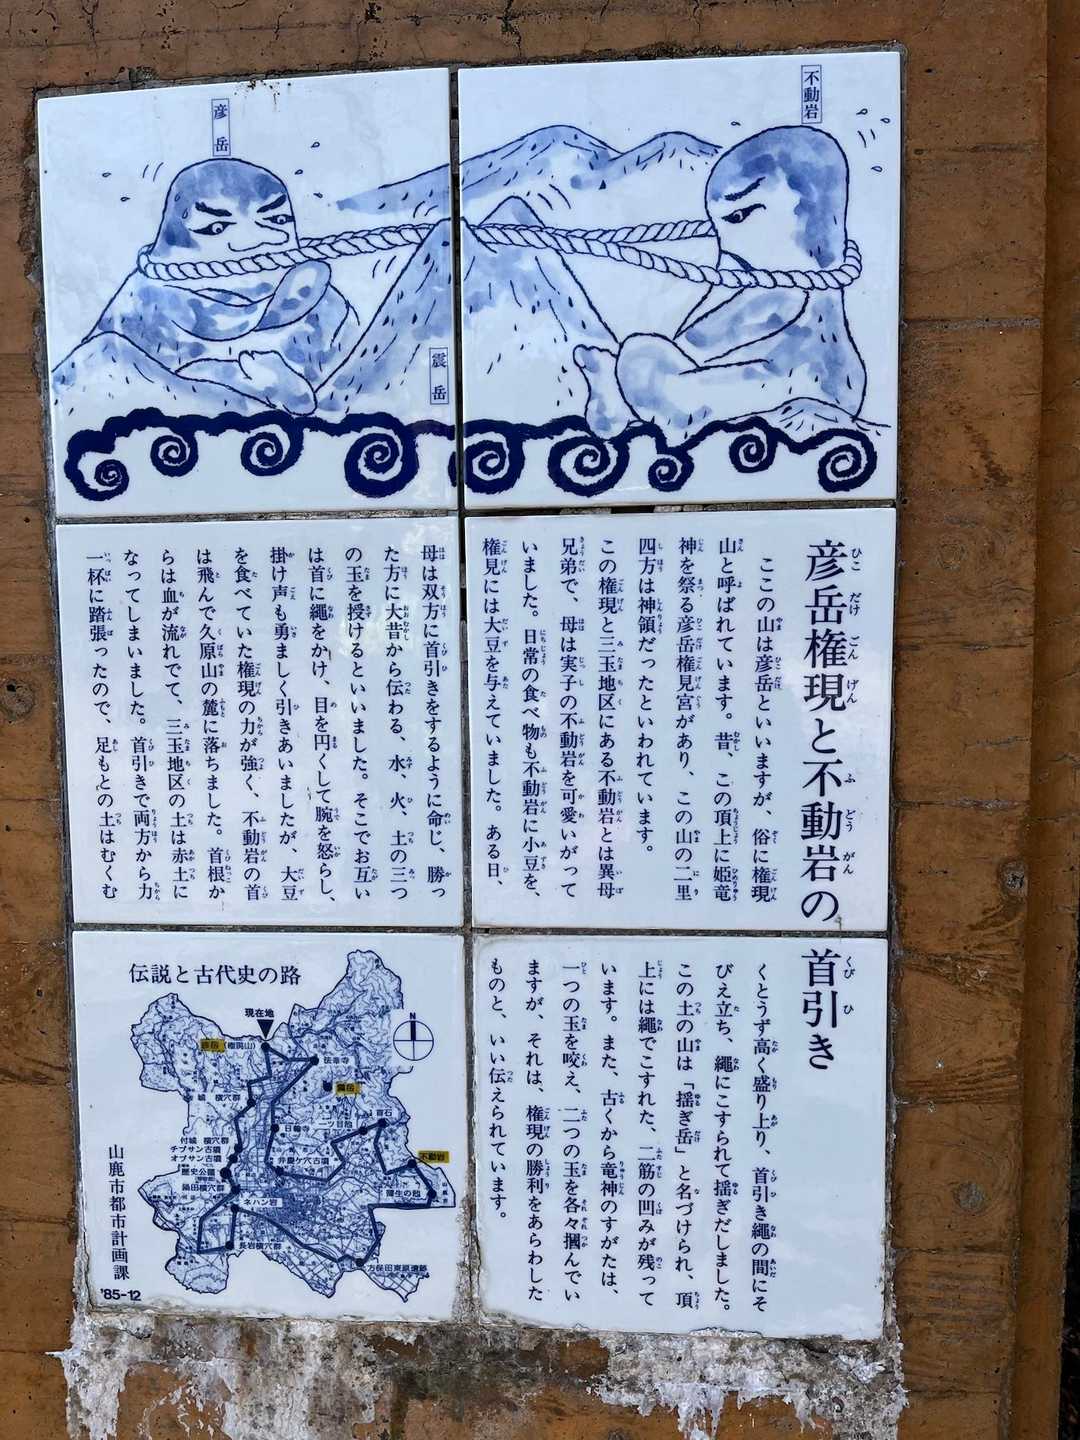 不動岩
彦岳
震岳
彦岳権現と不動岩の首引き
ひこだけごんげん ふどうがん くびひ
ここの山は彦岳といいますが、俗に権現
山と呼ばれています。昔、この頂上に姫竜
神を祭る彦岳権見宮があり、この山の二里
四方は神領だったといわれています。
この権現と三玉地区にある不動岩とは異母
兄弟で、母は実子の不動岩を可愛いがって
いました。日常の食べ物も不動岩に小豆を、
権見には大豆を与えていました。ある日、
母は双方に首引きをするように命じ、勝っ
た方に大昔から伝わる、水、火、土の三つ
の玉を授けるといいました。そこでお互い
は首に縄をかけ、目を円くして腕を怒らし、
掛け声も勇ましく引きあいましたが、大豆
を食べていた権現の力が強く、不動岩の首
は飛んで久原山の麓に落ちました。首根か
らは血が流れでて、三玉地区の土は赤土に
なってしまいました。首引きで両方から力
一杯に踏張ったので、足もとの土はむくむ
くとうず高く盛り上り、首引き縄の間にそ
びえ立ち、縄にこすられて揺ぎだしました。
この土の山は「揺ぎ岳」と名づけられ、頂
上には縄でこすった、二筋の凹みが残って
います。また、古くから竜神のすがたは、
一つの玉を咬え、二つの玉を各々摑んでい
ますが、それは、権現の勝利をあらわした
ものと、いい伝えられています。
伝説と古代史の路
現在地
N
彦岳(権現山)
法華寺
震岳
城 横穴群
一ツ目神
首石
日輪寺
付城 横穴群
チブサン古墳
オブサン古墳
弁慶ケ穴古墳
不動岩
歴史公園
鍋田横穴群
蒲生の池
ネハン岩
長岩横穴群
方保田東原遺跡
山鹿市都市計画課
'85-12